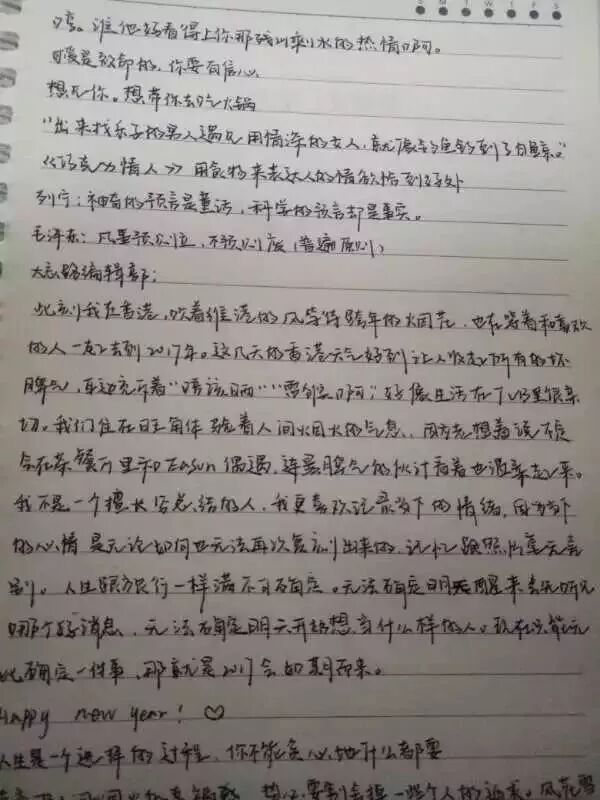 嘻。谁他妈看得上你那残山剩水的热情啊。
暧是致命的，你要有信心
想见你。想带你去吃火锅
“出来找乐子的男人遇见用情深的女人，就像去钓鱼钓到了白鲸。”
《巧克力情人》用食物来表达人的情欲恰到好处
列宁：神奇的预言是童话，科学的预言却是事实。
毛泽东：凡事预则立，不预则废（普遍原则）
大志路编辑部：
此刻我在香港，吹着维港的风等待跨年的烟花，也在等着和喜欢
的人一起去到2017年。这几天的香港天气好到让人收起所有的坏
脾气，耳边充斥着“唔该晒”“雪利啊”，好像生活在TVB里很亲
切。我们住在旺角体验着人间烟火的气息，因为总想着说不定
会在茶餐厅里和Eason偶遇，连暴脾气的伙计看着也温柔起来。
我不是一个擅长写总结的人，我更喜欢记录当下的情绪，因为当下
的心情是无论如何也无法再次复刻出来的，记忆跟照片毫无差
别。人生跟旅行一样满不可确定。无法确定明天醒来先听见
哪个好消息，无法确定明天开始想当什么样的人。现在只能
确定一件事，那就是2017会如期而来。
Happy new year! ♡
人生是一个选择的过程，你不能贪心地什么都要